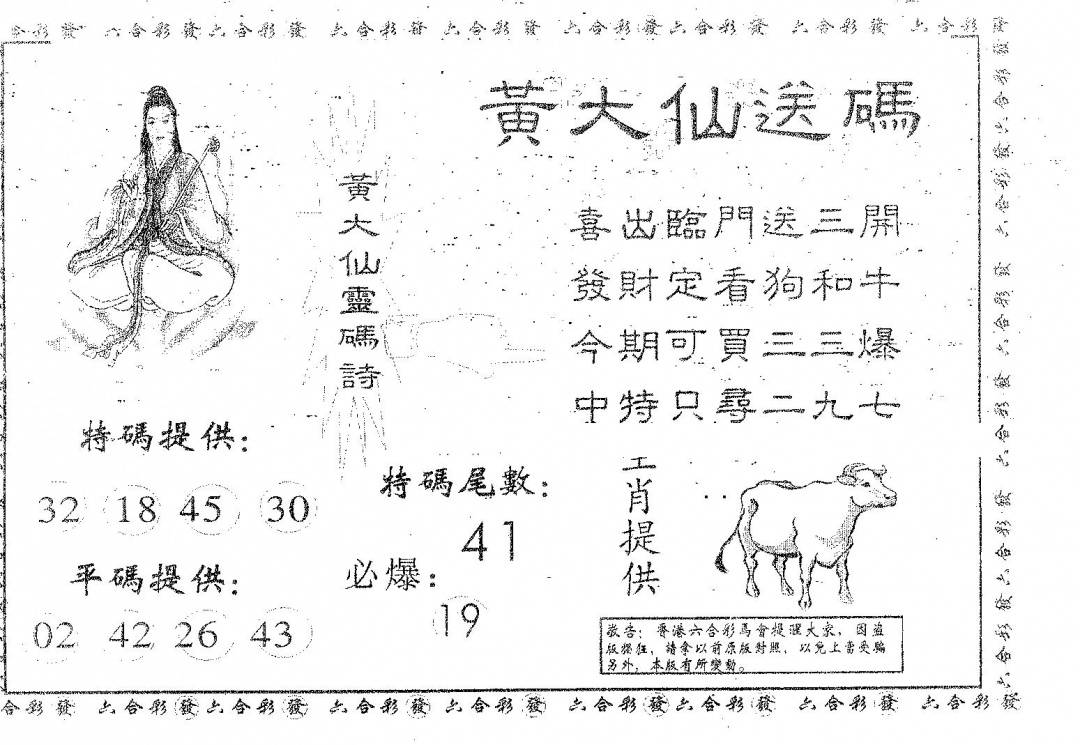 合彩發 六合彩發六合彩發 六合彩發 六合彩發 六合彩發六合彩發 六合彩發 六合彩發
黃大仙送碼
黃大仙靈碼詩
喜出臨門送三開
發財定看狗和牛
今期可買二三爆
中特只尋二九七
特碼提供：
32 18 45 30
平碼提供：
02 42 26 43
特碼尾數：
41
必爆：
19
肖提供
敬告：香港六合彩馬會提醒大家，因盜
版猖狂，請拿以前原版對照，以免上當受騙
另外，本版有所變動。
合彩發 六合彩發六合彩發 六合彩發 六合彩發 六合彩發六合彩發 六合彩發 六合彩發